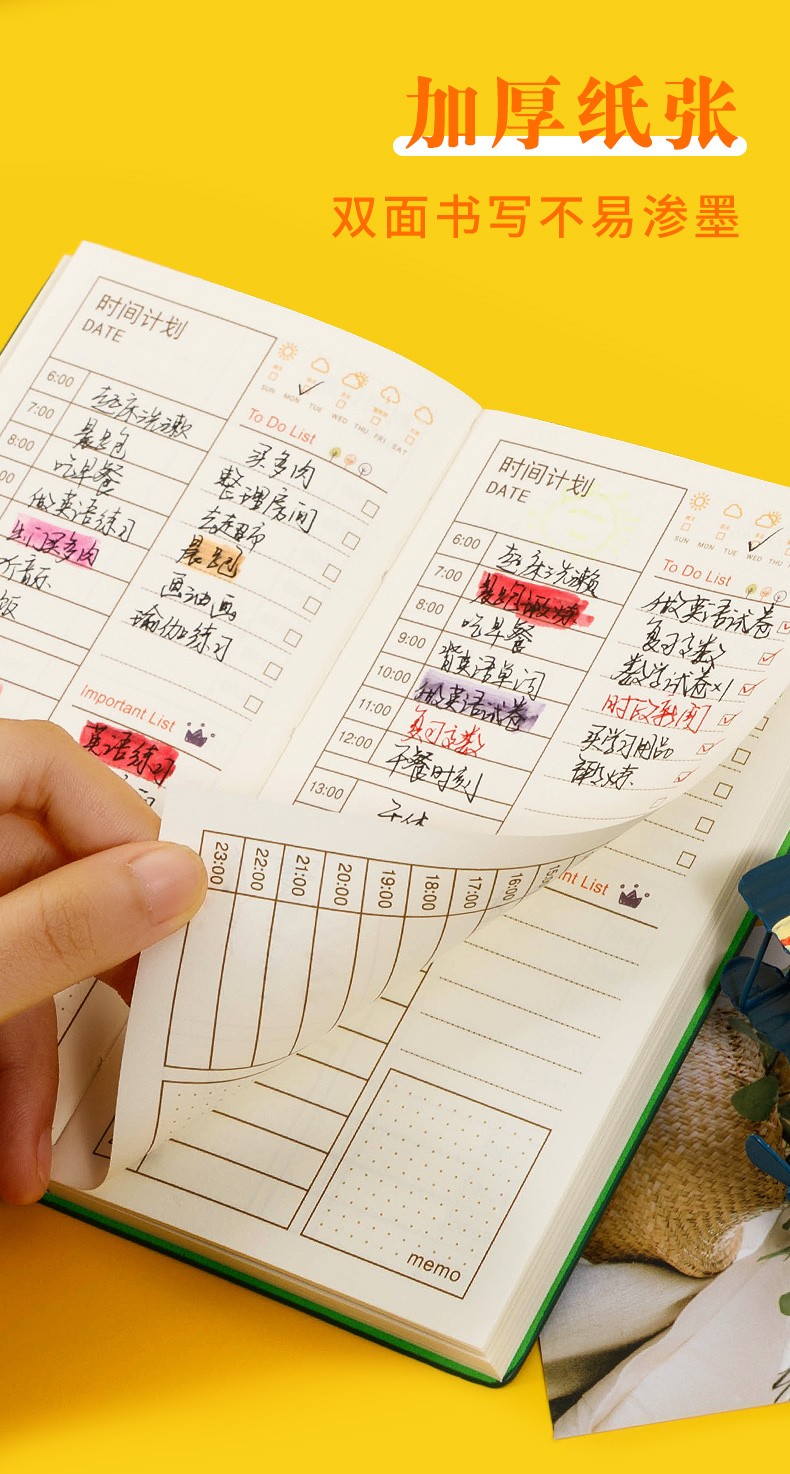 加厚纸张
双面书写不易渗墨
时间计划
DATE
SUN MON TUE WED THU FRI SAT
To Do List
6:00 起床洗漱
7:00 晨跑
8:00 吃早餐
做英语练习
出门买多肉
听音乐
饭
买多肉
整理房间
去超市
晨跑
画油画
瑜伽练习
Important List
英语练习
时间计划
DATE
SUN MON TUE WED THU
To Do List
6:00 起床洗漱
7:00
8:00 吃早餐
9:00 背英语单词
10:00 做英语试卷
11:00 复习文数
12:00 午餐时刻
13:00 午休
做英语试卷
复习文数
数学试卷×1
买学习用品
锻炼
23:00
22:00
21:00
20:00
19:00
18:00
17:00
16:00
nt List
memo